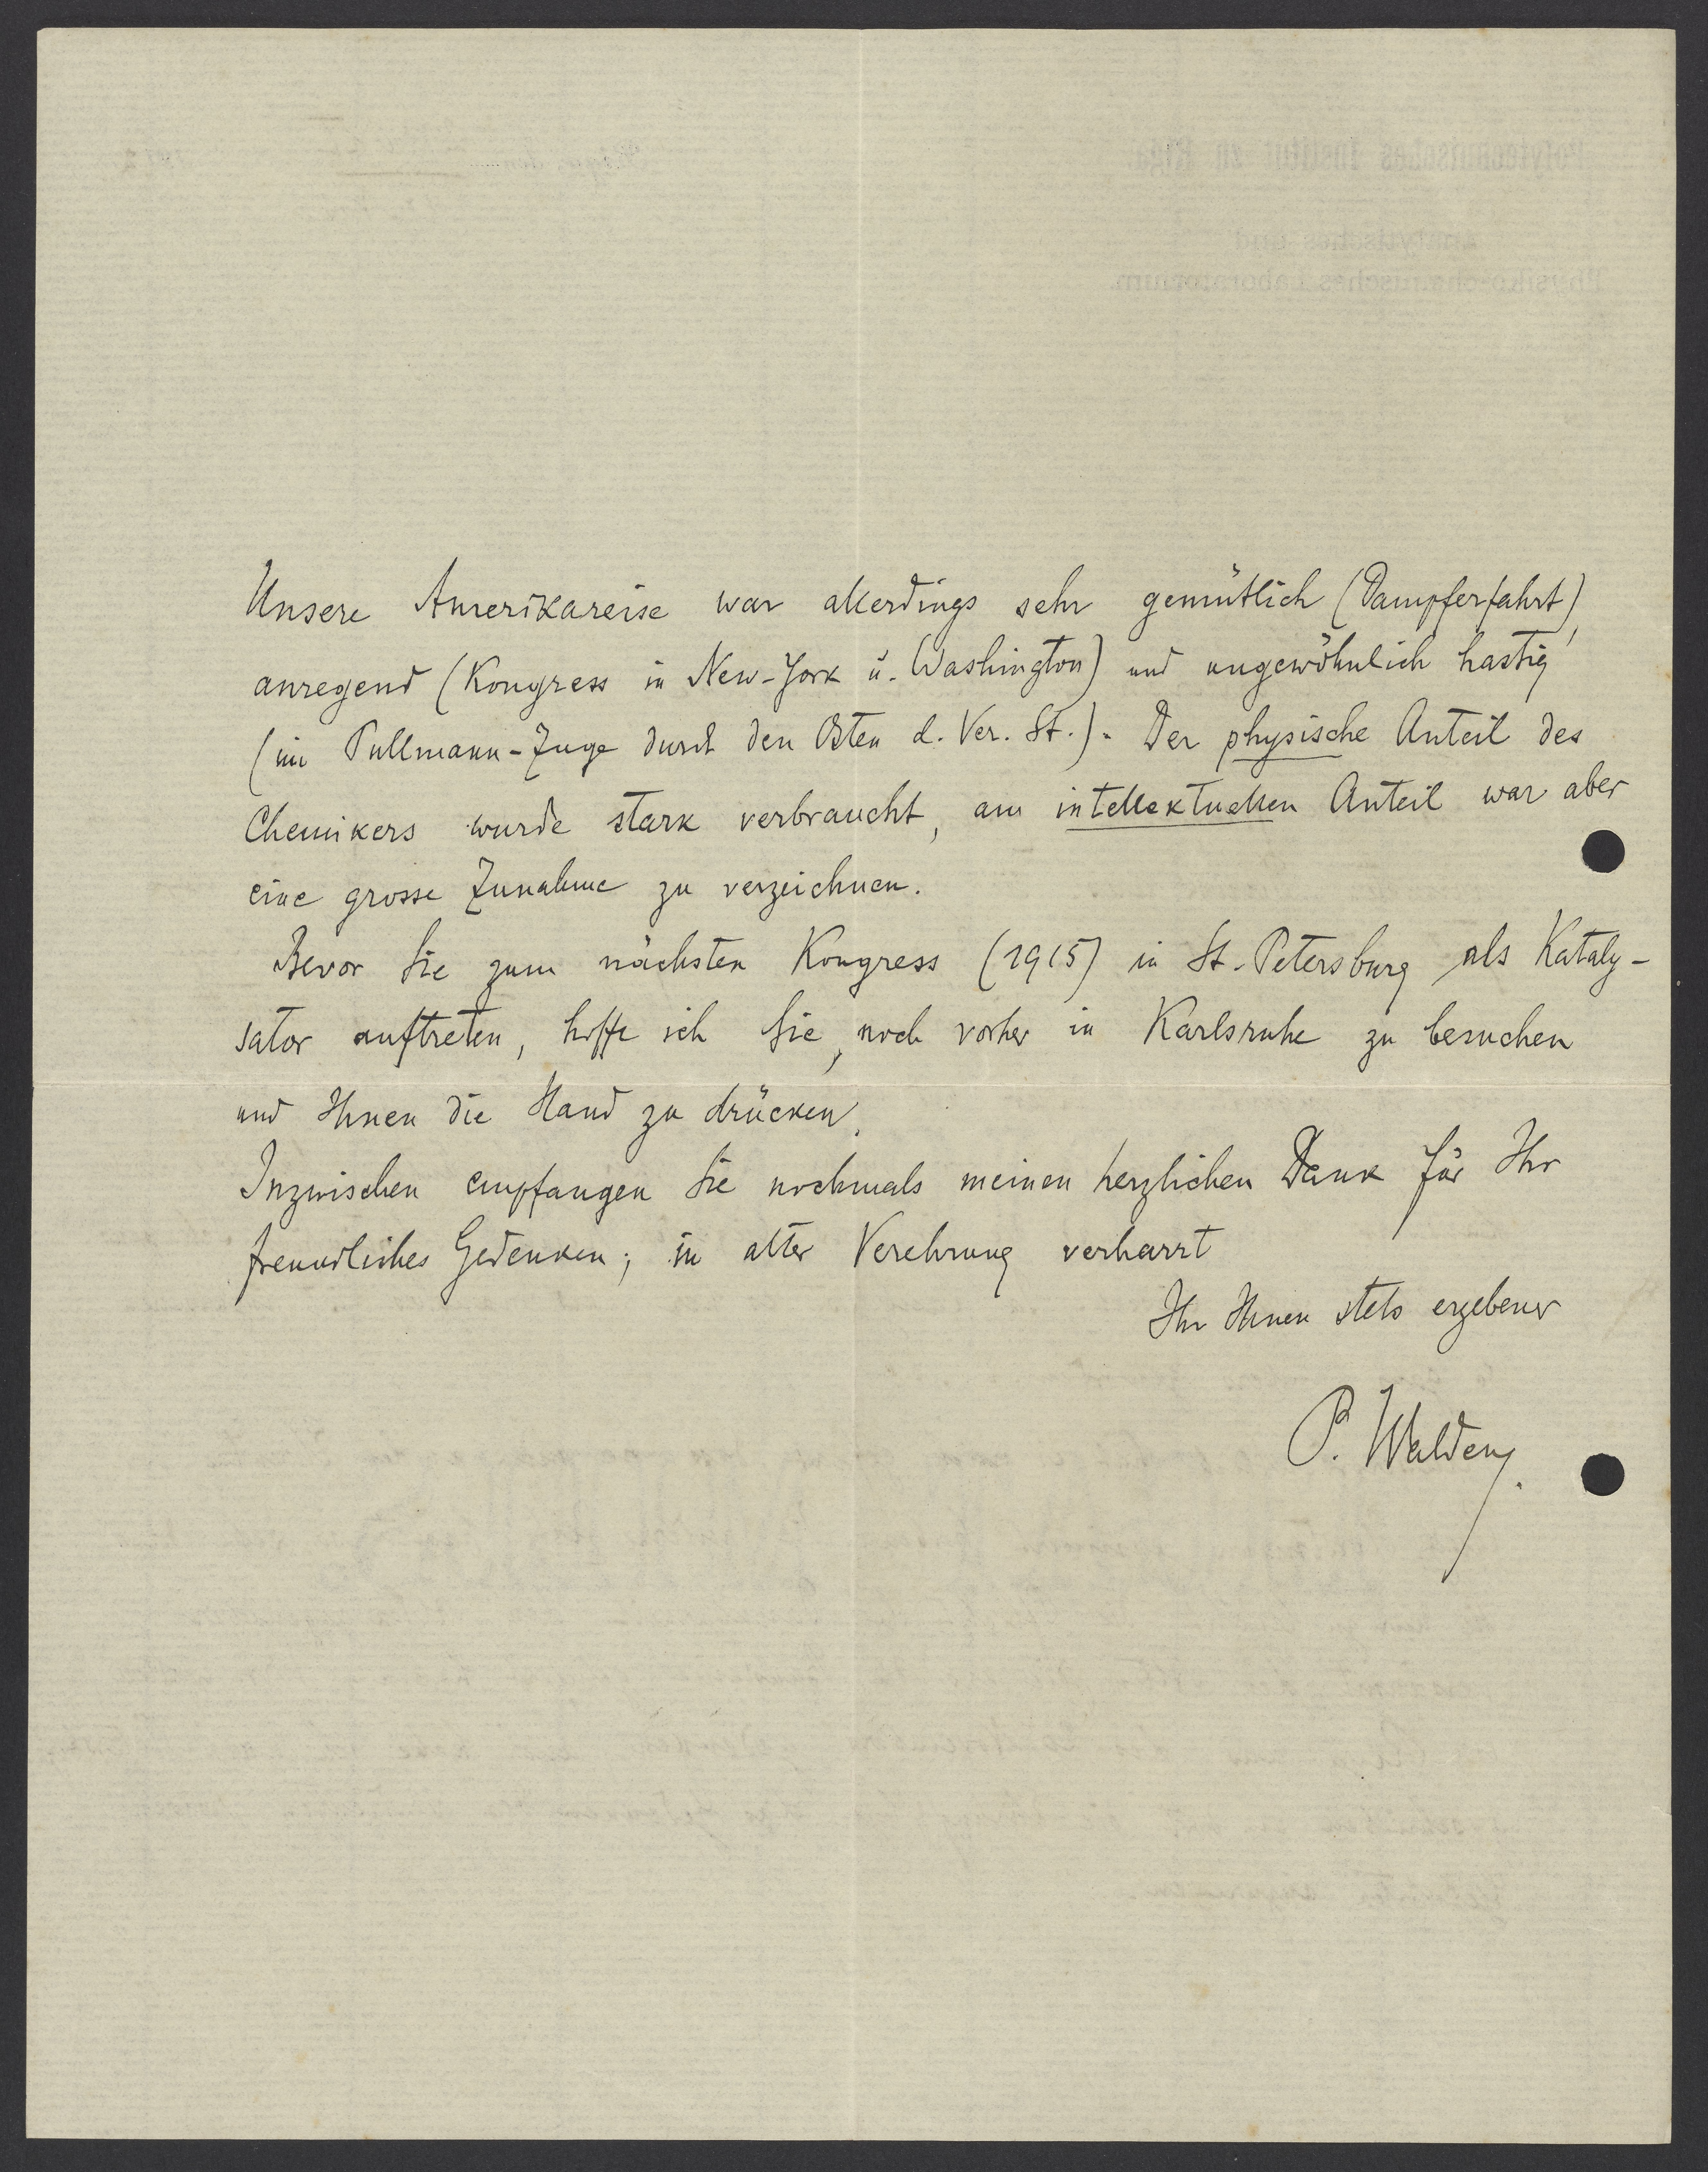 Unsere Amerikareise war allerdings sehr gemütlich (Dampferfahrt),
anregend (Kongress in New-York u. Washington) und ungewöhnlich hastig
(im Pullmann-Zuge durch den Osten d. Ver. St.). Der physische Anteil des
Chemikers wurde stark verbraucht, am intellektuellen Anteil war aber
eine grosse Zunahme zu verzeichnen.
Bevor Sie zum nächsten Kongress (1915) in St. Petersburg als Kataly-
sator auftreten, hoffe ich Sie, noch vorher in Karlsruhe zu besuchen
und Ihnen die Hand zu drücken.
Inzwischen empfangen Sie nochmals meinen herzlichen Dank für Ihr
freundliches Gedenken; in alter Verehrung verharrt
Ihr Ihnen stets ergebener
P. Walden.
Polytechnisches Institut zu Riga.
Analytisches und
Physiko-chemisches Laboratorium.